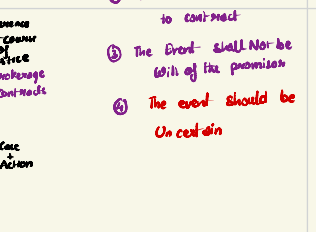 to contract
③ The Event shall Not be
will of the promisor
④ The event should be
Uncertain
Court
of
Brokerage
Contracts
+
Action